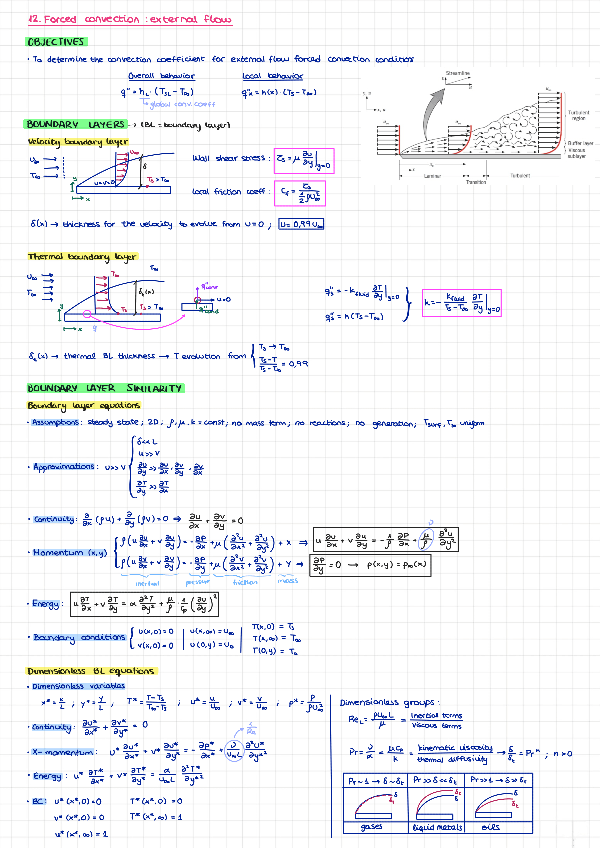 12. Forced convection: external flow
OBJECTIVES
· To determine the convection coefficient for external flow forced convection conditions
Overall behavior
Local behavior
q" = h̄_L · (T_S,L − T∞)
q"x = h(x) · (Ts − T∞)
global conv. coeff
Streamline
Turbulent region
Buffer layer
Viscous sublayer
Laminar
Transition
Turbulent
BOUNDARY LAYERS → (BL = boundary layer)
Velocity boundary layer
U∞
T∞
u=v=0
Ts > T∞
δ
y
x
Wall shear stress: τs = μ ∂u/∂y|y=0
Local friction coeff: Cf = τs / (1/2 ρU∞²)
δ(x) → thickness for the velocity to evolve from u=0; u = 0,99 U∞
Thermal boundary layer
U∞
T∞
T∞
T∞
δt(x)
Ts
Ts > T∞
y
x
q
q"conv
u=0
q"cond
q"s = −k fluid ∂T/∂y|y=0
q"s = h(Ts−T∞)
h = − k fluid/(Ts−T∞) ∂T/∂y|y=0
δt(x) → thermal BL thickness → T evolution from
Ts → T∞
(Ts−T)/(Ts−T∞) = 0,99
BOUNDARY LAYER SIMILARITY
Boundary layer equations
· Assumptions: steady state; 2D; ρ, μ, k = const; no mass term; no reactions; no generation; Tsurf, T∞ uniform
· Approximations: u>>v
δ<<L
u >> v
∂u/∂y >> ∂u/∂x, ∂v/∂y, ∂v/∂x
∂T/∂y >> ∂T/∂x
· Continuity: ∂/∂x (ρu) + ∂/∂y (ρv) = 0 ⇒ ∂u/∂x + ∂v/∂y = 0
· Momentum (x,y)
ρ(u ∂u/∂x + v ∂u/∂y) = −∂P/∂x + μ(∂²u/∂x² + ∂²u/∂y²) + X ⇒ u ∂u/∂x + v ∂u/∂y = −1/ρ ∂P/∂x + μ/ρ ∂²u/∂y²
ρ(u ∂v/∂x + v ∂v/∂y) = −∂P/∂y + μ(∂²v/∂x² + ∂²v/∂y²) + Y ⇒ ∂P/∂y = 0 → P(x,y) = P∞(x)
inertial pressure friction mass
· Energy: u ∂T/∂x + v ∂T/∂y = α ∂²T/∂y² + μ/ρ 1/cp (∂u/∂y)²
· Boundary conditions
u(x,0) = 0
v(x,0) = 0
u(x,∞) = U∞
u(0,y) = U∞
T(x,0) = Ts
T(x,∞) = T∞
T(0,y) = T∞
Dimensionless BL equations
· Dimensionless variables
x* = x/L ; y* = y/L ; T* = (T−Ts)/(T∞−Ts) ; u* = u/U∞ ; v* = v/U∞ ; P* = P/ρU∞²
· Continuity: ∂u*/∂x* + ∂v*/∂y* = 0
1/Re
· X-momentum: u* ∂u*/∂x* + v* ∂u*/∂y* = −∂P*/∂x* + ν/U∞L ∂²u*/∂y*²
· Energy: u* ∂T*/∂x* + v* ∂T*/∂y* = α/U∞L ∂²T*/∂y*²
· BC: u*(x*,0) = 0 T*(x*,0) = 0
v*(x*,0) = 0 T*(x*,∞) = 1
u*(x*,∞) = 1
Dimensionless groups:
Re_L = ρU∞L/μ = inertial terms/viscous terms
Pr = ν/α = μCp/k = kinematic viscosity/thermal diffusivity → δ/δt = Prⁿ ; n>0
Pr~1 → δ~δt
gases
liquid metals
Pr>>1 → δ>>δt
oils